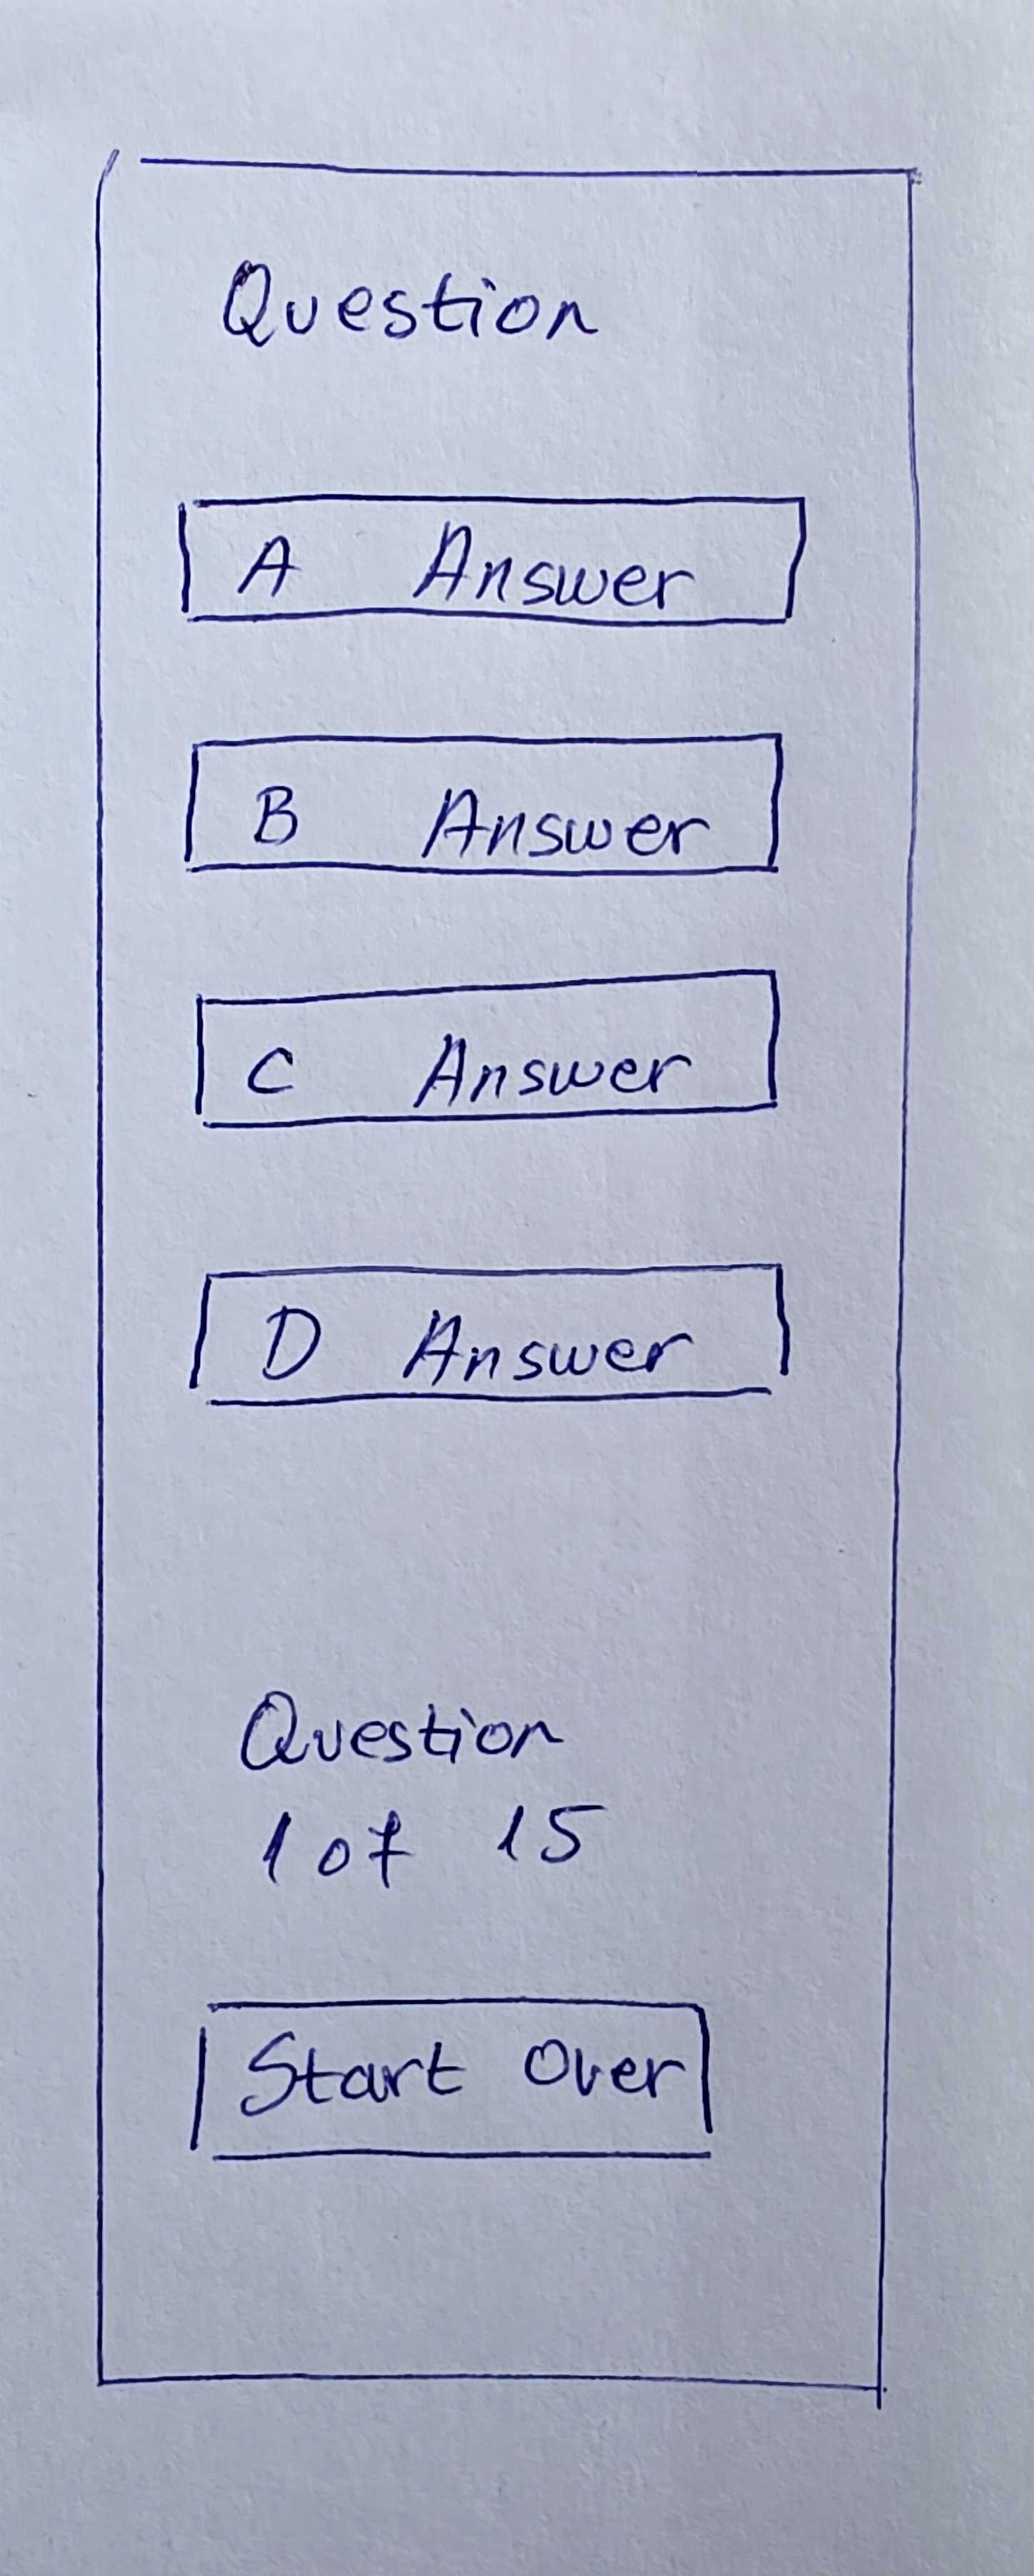 Question
A Answer
B Answer
C Answer
D Answer
Question
1 of 15
Start Over